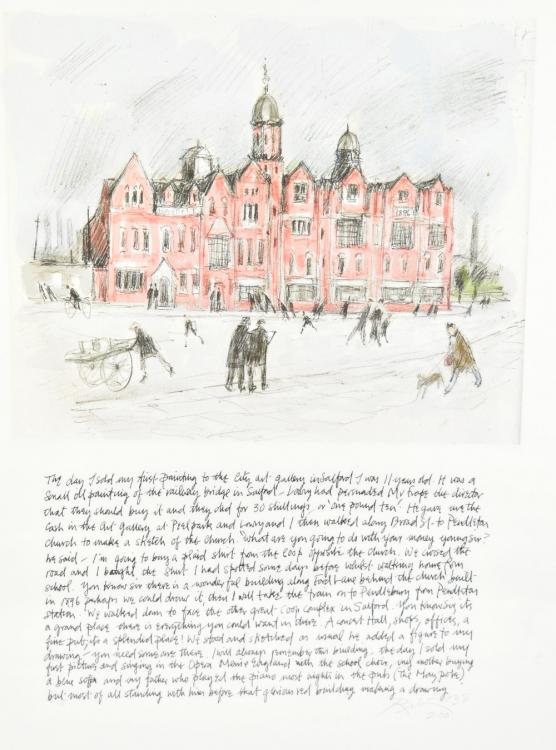 The day I sold my first painting to the City art gallery in Salford I was 11 years old. It was a
small oil painting of the railway bridge in Salford - Lowry had persuaded Mr Frape the director
that they should buy it and they did for 30 shillings, or one pound ten. He gave me the
cash in the Art Gallery at Peel park and Lowry and I then walked along Broad St. to Pendleton
church to make a sketch of the church. What are you going to do with your money young sir?
he said - I'm going to buy a plaid shirt from the Coop opposite the church. We crossed the
road and I bought the shirt I had spotted some days before whilst walking home from
school. You know sir there is a wonderful building along Ford Lane behind the church built
in 1896 perhaps we could draw it, then I will take the train on to Pendlebury from Pendleton
station. We walked down to face the other great Coop complex in Salford. You know sir its
a grand place there is everything you could want in there. A concert Hall, shops, offices, a
fine pub, its a splendid place! We stood and sketched as usual he added a figure to my
drawing - you need someone there. I will always remember this building - the day I sold my
first picture and singing in the Opera Merrie England with the school choir, my mother buying
a blue sofa and my father who played the piano most nights in the pub (The Maypole)
but most of all standing with him before that glorious red building making a drawing.